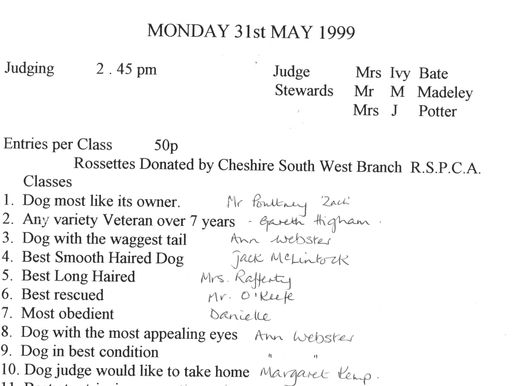 MONDAY 31st MAY 1999
Judging 2 . 45 pm Judge Mrs Ivy Bate
Stewards Mr M Madeley
Mrs J Potter
Entries per Class 50p
Rossettes Donated by Cheshire South West Branch R.S.P.C.A.
Classes
1. Dog most like its owner. Mr Poultney Zack
2. Any variety Veteran over 7 years - Gareth Higham .
3. Dog with the waggest tail Ann Webster
4. Best Smooth Haired Dog Jack McLintock
5. Best Long Haired Mrs. Rafferty
6. Best rescued Mr. O'Keefe
7. Most obedient Danielle
8. Dog with the most appealing eyes Ann Webster
9. Dog in best condition " "
10. Dog judge would like to take home Margaret Kemp.